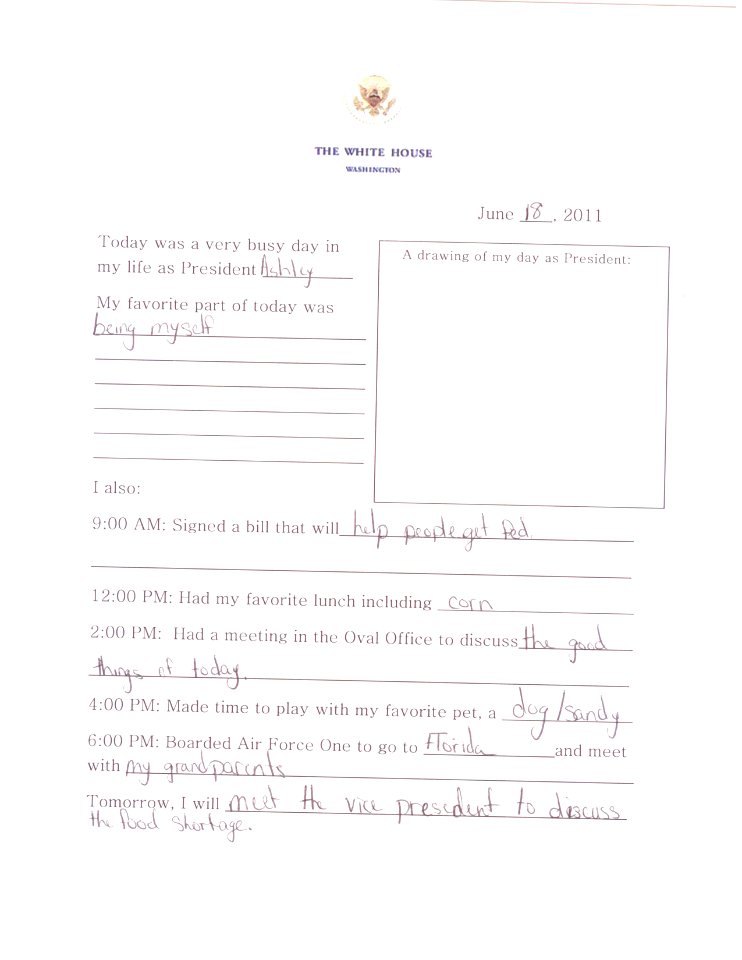 THE WHITE HOUSE
WASHINGTON
June 18, 2011
Today was a very busy day in
my life as President Ashley
My favorite part of today was
being myself
A drawing of my day as President:
I also:
9:00 AM: Signed a bill that will help people get fed.
12:00 PM: Had my favorite lunch including corn
2:00 PM: Had a meeting in the Oval Office to discuss the good
things of today.
4:00 PM: Made time to play with my favorite pet, a dog/sandy
6:00 PM: Boarded Air Force One to go to Florida and meet
with my grandparents
Tomorrow, I will meet the vice president to discuss
the food shortage.